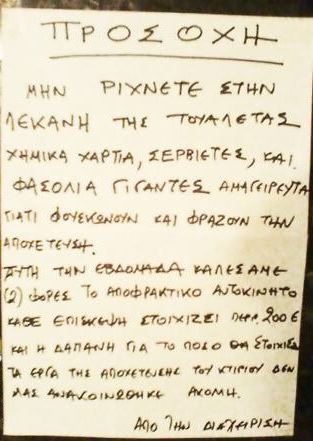 ΠΡΟΣΟΧΗ
ΜΗΝ ΡΙΧΝΕΤΕ ΣΤΗΝ
ΛΕΚΑΝΗ ΤΗΣ ΤΟΥΑΛΕΤΑΣ
ΧΗΜΙΚΑ ΧΑΡΤΙΑ, ΣΕΡΒΙΕΤΕΣ, ΚΑΙ
ΦΑΣΟΛΙΑ ΓΙΓΑΝΤΕΣ ΑΜΑΓΕΙΡΕΥΤΑ
ΓΙΑΤΙ ΦΟΥΣΚΩΝΟΥΝ ΚΑΙ ΦΡΑΖΟΥΝ ΤΗΝ
ΑΠΟΧΕΤΕΥΣΗ.
ΑΥΤΗ ΤΗΝ ΕΒΔΟΜΑΔΑ ΚΑΛΕΣΑΜΕ
(2) ΦΟΡΕΣ ΤΟ ΑΠΟΦΡΑΚΤΙΚΟ ΑΥΤΟΚΙΝΗΤΟ
ΚΑΘΕ ΕΠΙΣΚΕΨΗ ΣΤΟΙΧΙΖΕΙ ΠΕΡΡ. 200 €
ΚΑΙ Η ΔΑΠΑΝΗ ΓΙΑ ΤΟ ΠΟΣΟ ΘΑ ΣΤΟΙΧΙΣΟΥ
ΤΑ ΕΡΓΑ ΤΗΣ ΑΠΟΧΕΤΕΥΣΗΣ ΤΟΥ ΚΤΙΡΙΟΥ ΔΕΝ
ΜΑΣ ΑΝΑΚΟΙΝΩΘΗΚΕ ΑΚΟΜΗ.
ΑΠΟ ΤΗΝ ΔΙΑΧΕΙΡΙΣΗ